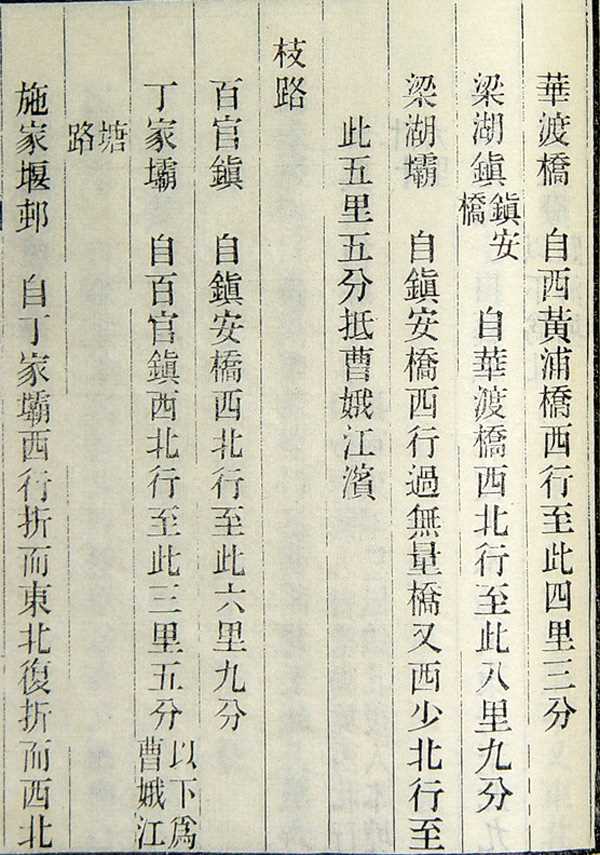 華渡橋 自西黃浦橋西行至此四里三分
梁湖鎮鎮安橋 自華渡橋西北行至此八里九分
梁湖壩 自鎮安橋西行過無量橋又西少北行至
此五里五分抵曹娥江濱
枝路
百官鎮 自鎮安橋西北行至此六里九分
丁家壩 自百官鎮西北行至此三里五分以下為曹娥江
塘路
施家堰邨 自丁家壩西行折而東北復折而西北